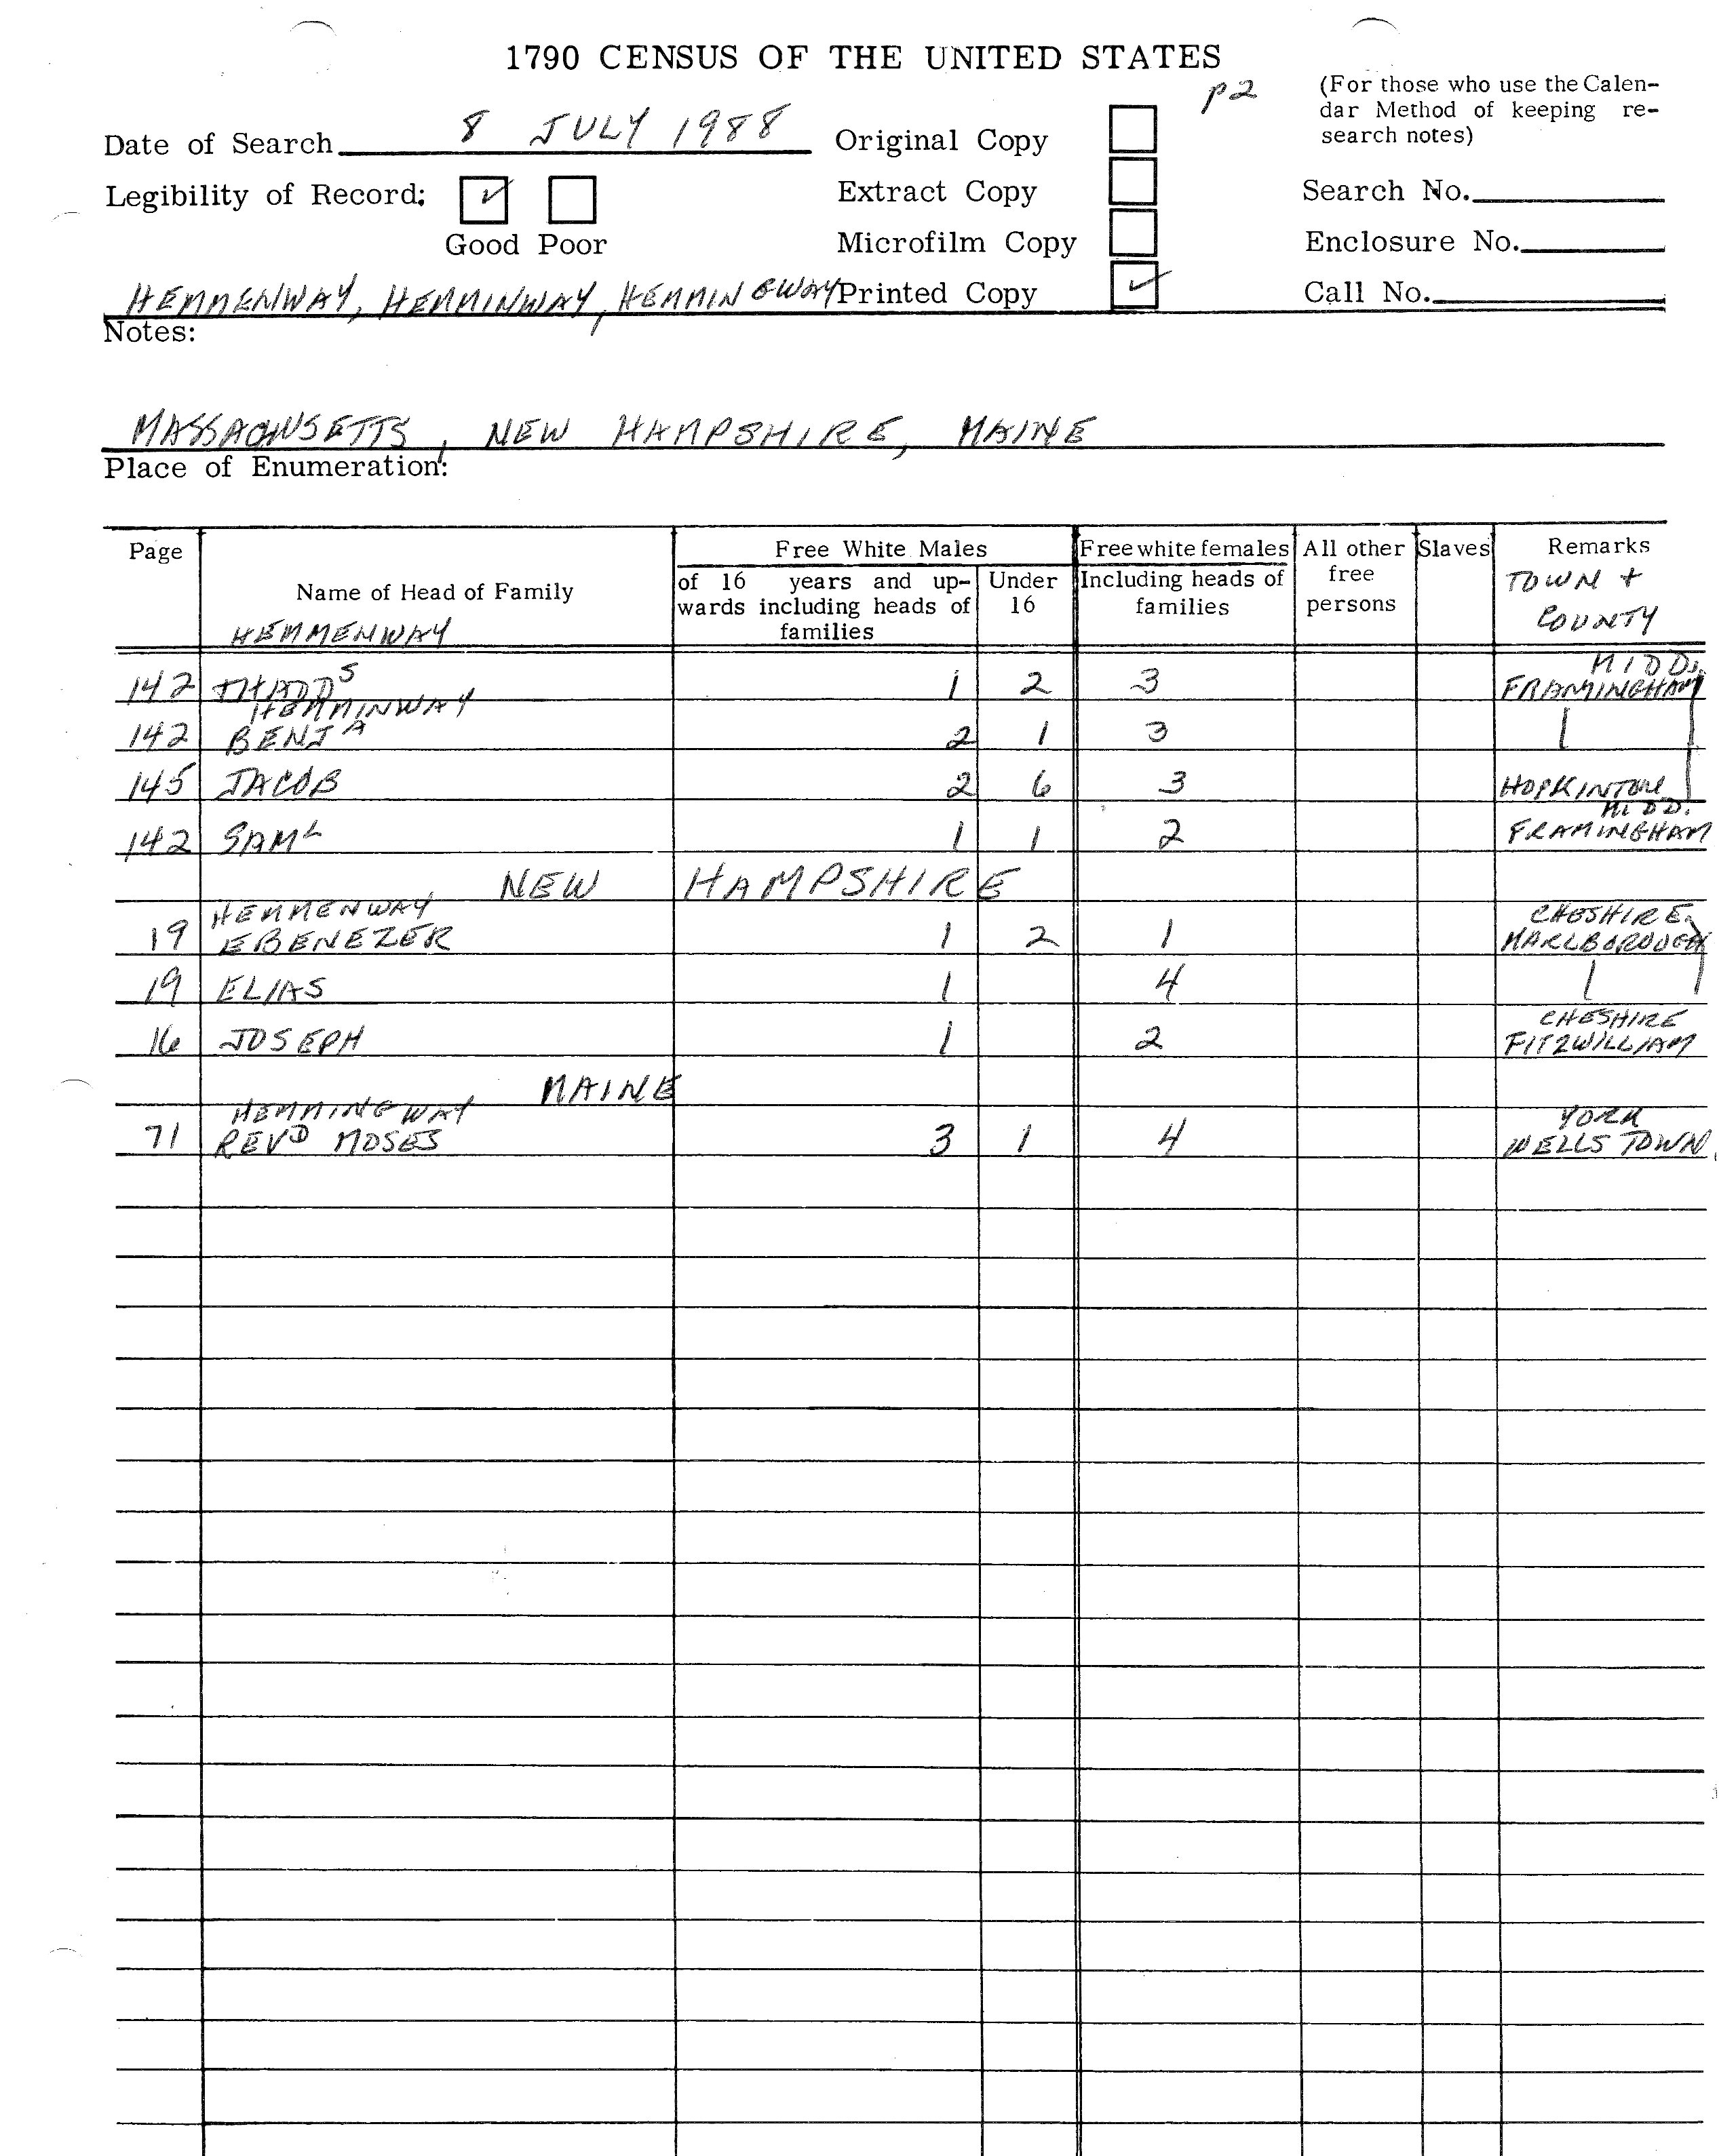 1790 CENSUS OF THE UNITED STATES
p2
(For those who use the Calen-
dar Method of keeping re-
search notes)
Date of Search 8 JULY 1988
Original Copy
Legibility of Record: ✓
Good Poor
Extract Copy
Search No.
Microfilm Copy
Enclosure No.
HEMMENWAY, HEMMINWAY, HEMMINGWAY
Printed Copy ✓
Call No.
Notes:
MASSACHUSETTS, NEW HAMPSHIRE, MAINE
Place of Enumeration:
Page
Name of Head of Family
HEMMENWAY
Free White Males
of 16 years and up-
wards including heads of
families
Under
16
Free white females
Including heads of
families
All other
free
persons
Slaves
Remarks
TOWN +
COUNTY
142 THADDS 1 2 3 MIDD. FRAMINGHAM
HEMMINWAY
142 BENJA 2 1 3
145 JACOB 2 6 3 HOPKINTON
142 SAML 1 1 2 MIDD. FRAMINGHAM
NEW HAMPSHIRE
HEMMENWAY
19 EBENEZER 1 2 1 CHESHIRE MARLBOROUGH
19 ELIAS 1 4
16 JOSEPH 1 2 CHESHIRE FITZWILLIAM
MAINE
HEMMINGWAY
71 REVD MOSES 3 1 4 YORK WELLS TOWN